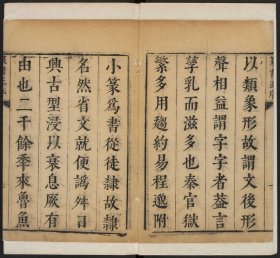 以類象形故謂文後形
聲相益謂字字者益言
孳乳而滋多也秦官獄
繁多用趨約易程邈附
小篆為書從徒隸故隸
名然省文就便譌舛日
興古型浸以衰息厥有
由也二千餘季來魯魚